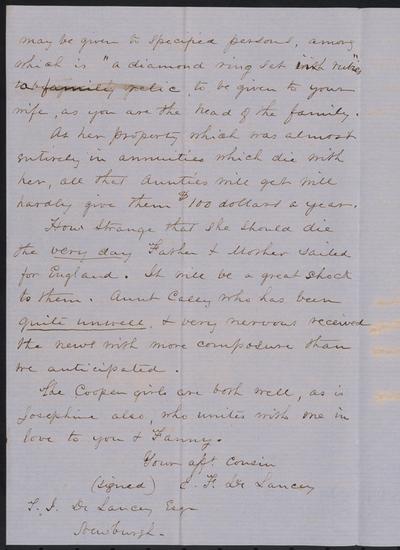 may be given to specified persons, among
which is "a diamond ring set with rubies"
a family relic, to be given to your
wife, as you are the head of the family.
As her property which was almost
entirely in annuities which die with
her, all that Aunties will get will
hardly give them $100 dollars a year.
How strange that she should die
the very day Father & Mother sailed
for England. It will be a great shock
to them. Aunt Caley who has been
quite unwell, & very nervous received
the news with more composure than
we anticipated.
The Cooper girls are both well, as is
Josephine also, who unites with me in
love to you & Fanny.
Your afft. cousin
(signed) E. F. De Lancey
T. J. De Lancey Esqr
Newburgh.